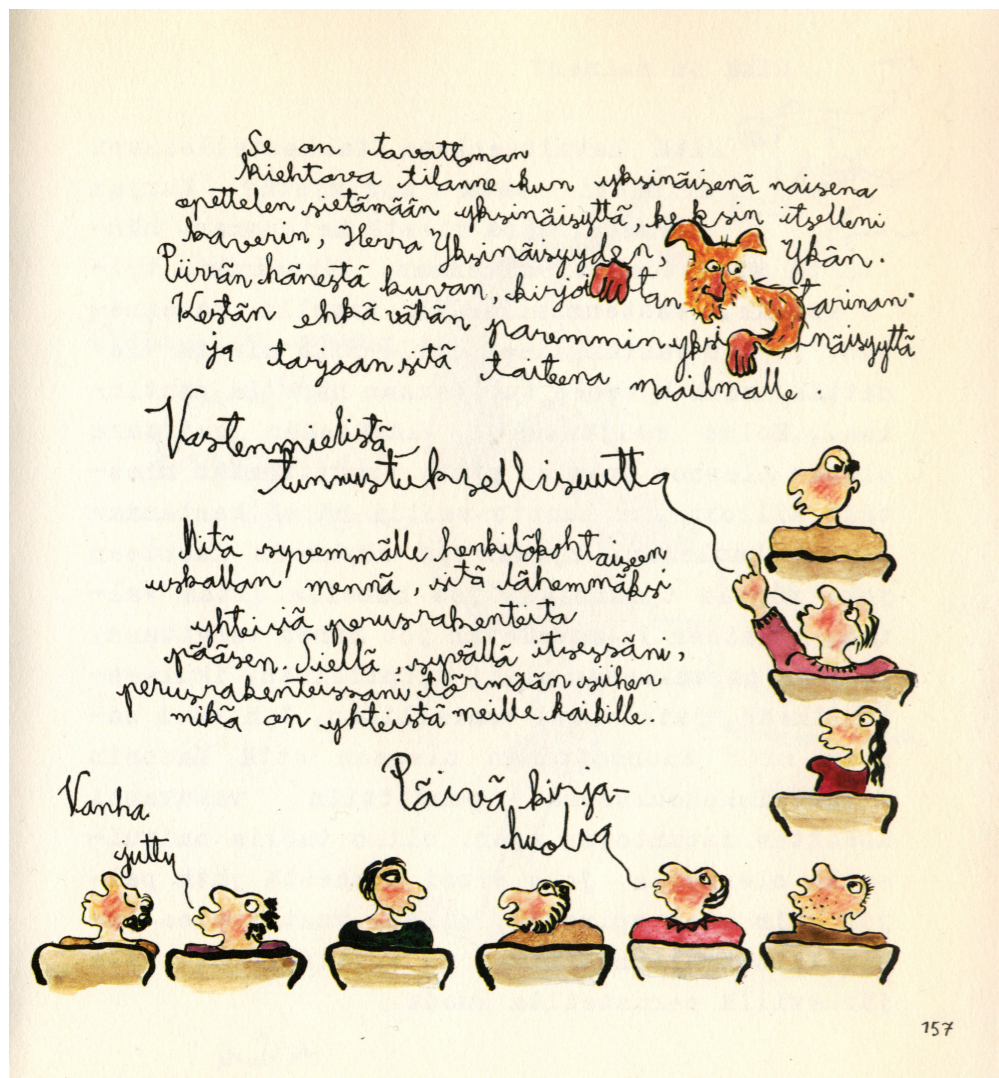 Se on tavattoman
kiehtova tilanne kun yksinäisenä naisena
opettelen sietämään yksinäisyyttä, keksin itselleni
kaverin, Herra Yksinäisyyden, Ykän.
Piirrän hänestä kuvan, kirjoitan tarinan.
Kestän ehkä vähän paremmin yksinäisyyttä
ja tarjoan sitä taiteena maailmalle.
Vastenmielistä
tunnustuksellisuutta
Mitä syvemmälle henkilökohtaiseen
uskallan mennä, sitä lähemmäksi
yhteisiä perusrakenteita
pääsen. Siellä, syvällä itsessäni,
perusrakenteissani törmään siihen
mikä on yhteistä meille kaikille.
Vanha
juttu
Päiväkirja-
huolia
157